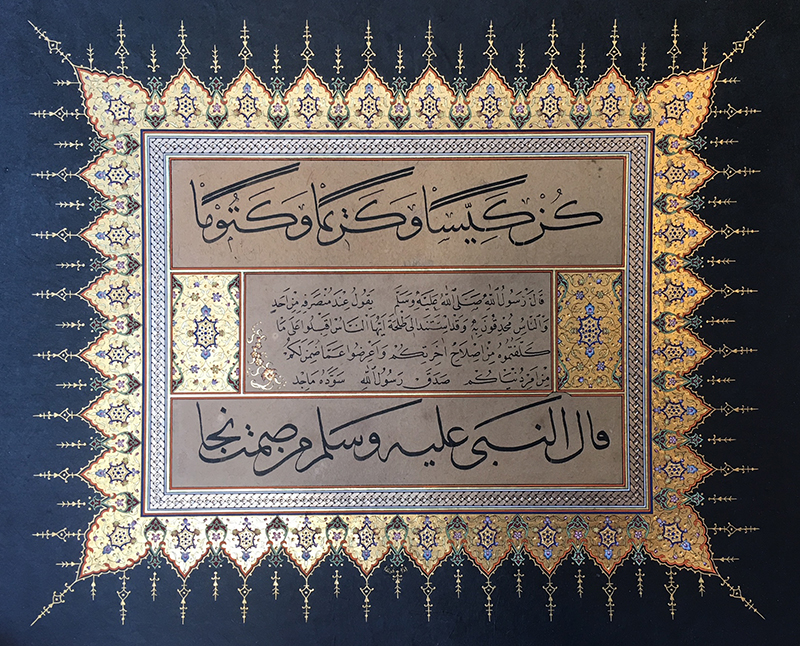 كُنْ كَيِّسًا وَكَرِيمًا وَكَتُومًا
قَالَ رَسُولُ اللهِ صَلَّى اللهُ عَلَيْهِ وَسَلَّمَ يَقُولُ عِنْدَ مُنْصَرَفِهِ مِنْ اَحَدٍ
وَالنَّاسُ مُحْدِقُونَ بِهِ وَقَدْ اِسْتَنَدَ اِلَى طَلْحَةَ اَيُّهَا النَّاسُ اَقْبِلُوا عَلَى مَا
كُلِّفْتُمُوهُ مِنْ اِصْلَاحِ اٰخِرَتِكُمْ وَاَعْرِضُوا عَمَّا ضُمِنَ لَكُمْ
مِنْ اَمْرِ دُنْيَاكُمْ صَدَقَ رَسُولُ اللهِ سَوَّدَهُ مَاجِد
قال النبى عليه وسلم من صمت نجا